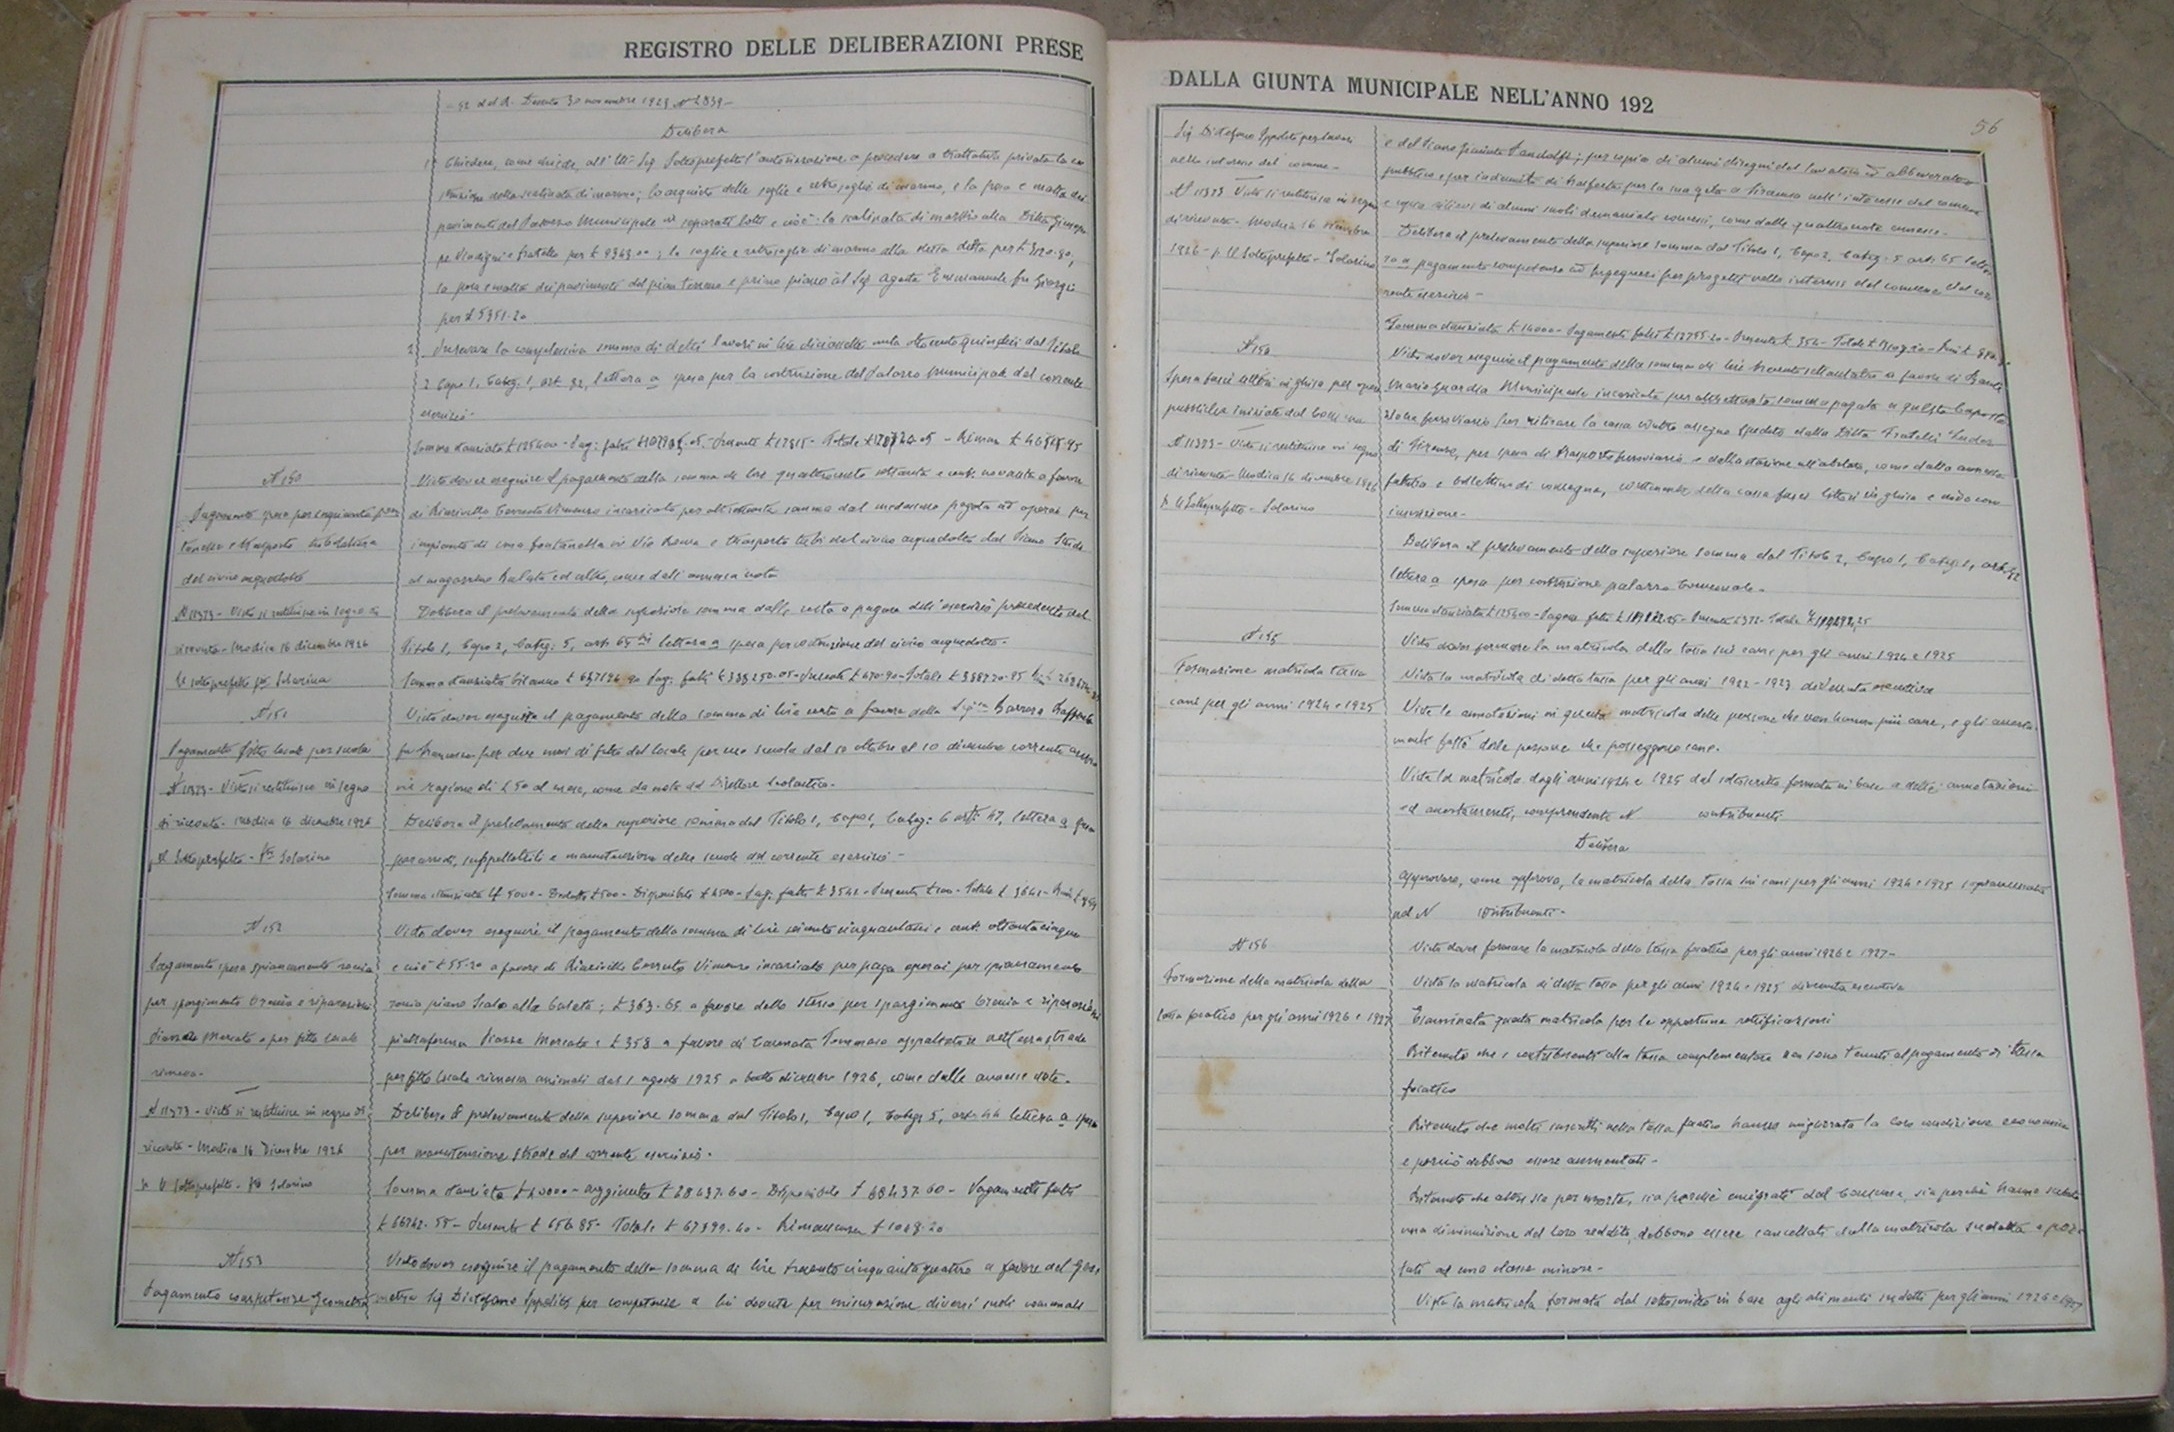 REGISTRO DELLE DELIBERAZIONI PRESE
52 del R. Decreto 30 novembre 1923 N 2839-
Delibera
Chiedere, come chiede, all'Ill. Sig. Sottoprefetto l'autorizzazione a procedere a trattativa privata la co
struzione della scalinata di marmo; lo acquisto delle soglie e retrosoglie di marmo, e la posa e malta dei
pavimenti del Palazzo Municipale in separati lotti e cioè: la scalinata di marmo alla Ditta Giusep
pe e fratello per £ 9343.00; le soglie e retrosoglie di marmo alla stessa ditta per £ 3120.80;
la posa e malta dei pavimenti del pian terreno e primo piano al Sig Agosta Emmanuele fu Giorgio
per £ 5351.20
2 Prelevare la complessiva somma di detti lavori in lire diciassette mila ottocento quindici dal Titolo
2 Capo 1, Categ. 1, art 92, lettera a spesa per la costruzione del Palazzo Municipale del corrente
esercizio.
Somma stanziata £ 125400 - Pag: fatti - Presente £ 17815 - Totale - Riman
N 150
Pagamento spese per impianto fon
tanella e trasporto tubolatura
del civico acquedotto
N 11373 - Visto si restituisce in segno di
ricevuta - Modica 16 dicembre 1926
Il Sottoprefetto Solarino
Visto dover eseguire il pagamento della somma di lire quattrocento settanta e cent. novanta a favore
di Corrado Vincenzo incaricato per altrettanta somma dal medesimo pagata ad operai per
impianto di una fontanella in Via Roma e trasporto tubi del civico acquedotto dal Piano Scalo
al magazzino Balata ed altro, come dall'annessa nota
Delibera il prelevamento della superiore somma dalle resta a pagare dell'esercizio precedente dal
Titolo 1, Capo 2, Categ: 5, art: 65 lettera a spesa per costruzione del civico acquedotto.
Somma stanziata bilancio Pag: fatti £ 338250.05 - Presente £ 470.90 - Totale £ 338720.95
N 151
Pagamento fitto locale per scuola
N 11373 - Visto si restituisce in segno
di ricevuta - Modica 16 dicembre 1926
Il Sottoprefetto - Solarino
Visto dover eseguire il pagamento della somma di lire cento a favore della Sig.ra Barrera Raffaela
fu Francesco per due mesi di fitto del locale per uso scuola dal 10 ottobre al 10 dicembre corrente anno
in ragione di £ 50 al mese, come da nota del Direttore Scolastico.
Delibera il prelevamento della superiore somma dal Titolo 1, Capo 1, Categ: 6 art: 47, lettera a spesa
per arredi, suppellettili e manutenzione delle scuole del corrente esercizio -
Somma stanziata £ 5000 - Dedotte £ 500 - Disponibile £ 4500 - Pag: fatti £ 3542 - Presente £ 100 - Totale £ 3642
N 152
Pagamento spesa spianamento
per spargimento breccia e riparazioni
Piazzale Mercato e per fitto locale
rimessa.
N 11373 - Visto si restituisce in segno di
ricevuta - Modica 16 Dicembre 1926
p. Il Sottoprefetto - Solarino
Visto dover eseguire il pagamento della somma di lire e cent ottantacinque
e cioè £ 55.20 a favore di Corrado Vincenzo incaricato per paga operai per spianamento
piano Scalo alla balata; £ 363.65 a favore dello stesso per spargimento breccia e riparazioni
piattaforma Piazza Mercato e £ 358 a favore di Carenata Tommaso appaltatore nettezza strade
per fitto locale rimessa animali dal 1 agosto 1925 a tutto dicembre 1926, come dalle annesse note.
Delibera il prelevamento della superiore somma dal Titolo 1, Capo 1, Categ 5, art: 44 lettera a spesa
per manutenzione strade del corrente esercizio.
Somma stanziata £ 40000 - aggiunta £ 28437.60 - Disponibile £ 68437.60 - Pagamenti fatti
Totale - Rimanenza
N 153
Pagamento competenze Geometra
Visto dover eseguire il pagamento della somma di lire trecento cinquantaquattro a favore del Geo
metra Sig Distefano Ippolito per competenze a lui dovute per misurazione diversi suoli comunali
DALLA GIUNTA MUNICIPALE NELL'ANNO 192
56
Sig Distefano Ippolito per lavori
nello interesse del comune -
N 11373 Visto si restituisce in segno
di ricevuta - Modica 16 dicembre
1926 - p. Il Sottoprefetto - Solarino
e del Piano; per copia di alcuni disegni del lavatoio ed abbeveratoio
pubblico e per indennità di trasferta per la sua gita a Siracusa nell'interesse del comune
e copia rilievi di alcuni suoli demaniali concessi, come dalle quattro note annesse -
Delibera il prelevamento della superiore somma dal Titolo 1, Capo 2, Categ. 5 art: 65 lette
ra a pagamento competenze ad Ingegneri per progetti nello interesse del comune del cor
rente esercizio -
Somma stanziata £ 14000 - Pagamenti fatti £ 12755.20 - Presente £ 354 - Totale £ 13109.20
N 154
Spesa fasci littori in ghisa per opere
pubbliche iniziate dal Comune
N 11373 - Visto si restituisce in segno
di ricevuta - Modica 16 dicembre 1926
p. Il Sottoprefetto - Solarino
Visto dover eseguire il pagamento della somma di lire a favore di
Guardia Municipale incaricato per altrettanta somma pagata a questo Capo sta
zione ferroviario per ritirare la cassa contro assegno spedita dalla Ditta Fratelli
di Firenze, per spesa di trasporto ferroviario e dalla stazione all'abitato, come dalla annessa
fattura e bollettino di consegna, contenente detta cassa fasci littori in ghisa e nodo con
iscrizione -
Delibera il prelevamento della superiore somma dal Titolo 2, Capo 1, Categ. 1, art. 92
lettera a spesa per costruzione palazzo Comunale -
Somma stanziata £ 125400 - Pagam. fatti - Presente - Totale
N 155
Formazione matricola tassa
cani per gli anni 1924 e 1925
Visto dover formare la matricola della tassa sui cani per gli anni 1924 e 1925
Vista la matricola di detta tassa per gli anni 1922 - 1923 divenuta esecutiva
Viste le annotazioni in questa matricola delle persone che non hanno più cane, e gli accerta
menti fatti delle persone che posseggono cane.
Vista la matricola degli anni 1924 e 1925 dal sottoscritto formata in base a dette annotazioni
ed accertamenti, comprendente N contribuenti
Delibera
approvare, come approva, la matricola della tassa sui cani per gli anni 1924 e 1925
ad N contribuenti -
N 156
Formazione della matricola della
tassa focatico per gli anni 1926 e 1927
Visto dover formare la matricola della tassa focatico per gli anni 1926 e 1927 -
Vista la matricola di detta tassa per gli anni 1924 e 1925 divenuta esecutiva
Esaminata questa matricola per le opportune rettificazioni
Ritenuto che i contribuenti alla tassa complementare non sono tenuti al pagamento di tassa
focatico
Ritenuto che molti inscritti nella tassa focatico hanno migliorato la loro condizione economica
e perciò debbono essere aumentati -
Ritenuto che altri sia per morte, sia perché emigrati dal Comune, sia perché hanno subito
una diminuzione del loro reddito, debbono essere cancellati dalla matricola sudetta e pas
sati ad una classe minore -
Vista la matricola formata dal sottoscritto in base agli elementi sudetti per gli anni 1926 e 1927